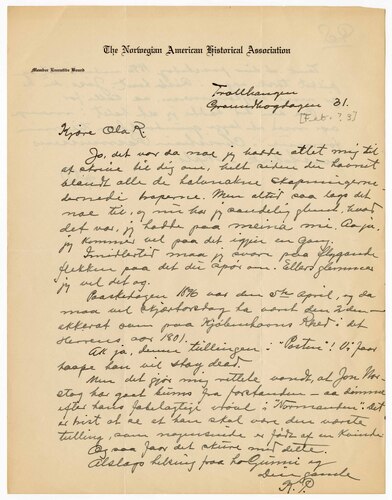 The Norwegian American Historical Association
Member Executive Board
Trollhaugen
Groundhogdagen 31.
[Feb. ? 3]
Kjære Ola R.
Jo, det var da noe jeg hadde etlet mig til
at skrive til dig om, helt siden du kom
blandt alle de halvnakne skapningerne
dernedi troperne. Men altid saa kom det
noe til, og nu har jeg sandelig glemt, hvad
det var, jeg hadde paa
jeg kommer vel paa det igjen en Gang.
Imidlertid maa jeg svare paa flygende
flekken paa det du spør om. Ellers glemmer
jeg vel det og.
Paaskedagen 1896 var den 5te April, og da
maa vel skjærtorsdag ha vært den 2den
akkurat som paa Kjøbenhavns Rhed: i det
herrens aar 1801.
Ak ja, denne tullingen i "Posten"! Vi faar
haape han vil stay dead.
Men det gjør mig rettele vondt, at Jon Nor-
stog har gaat kuns fra forstanden — aa dømme
efter hans fabelagtige vrøvl i Normanden. det
er trist at se at han skal være den værste
tulling, som nogensinde er født af en kvinde
Og saa faar det skure med dette.
Alslags helsing fraa ho Gunni og
Dein gamle